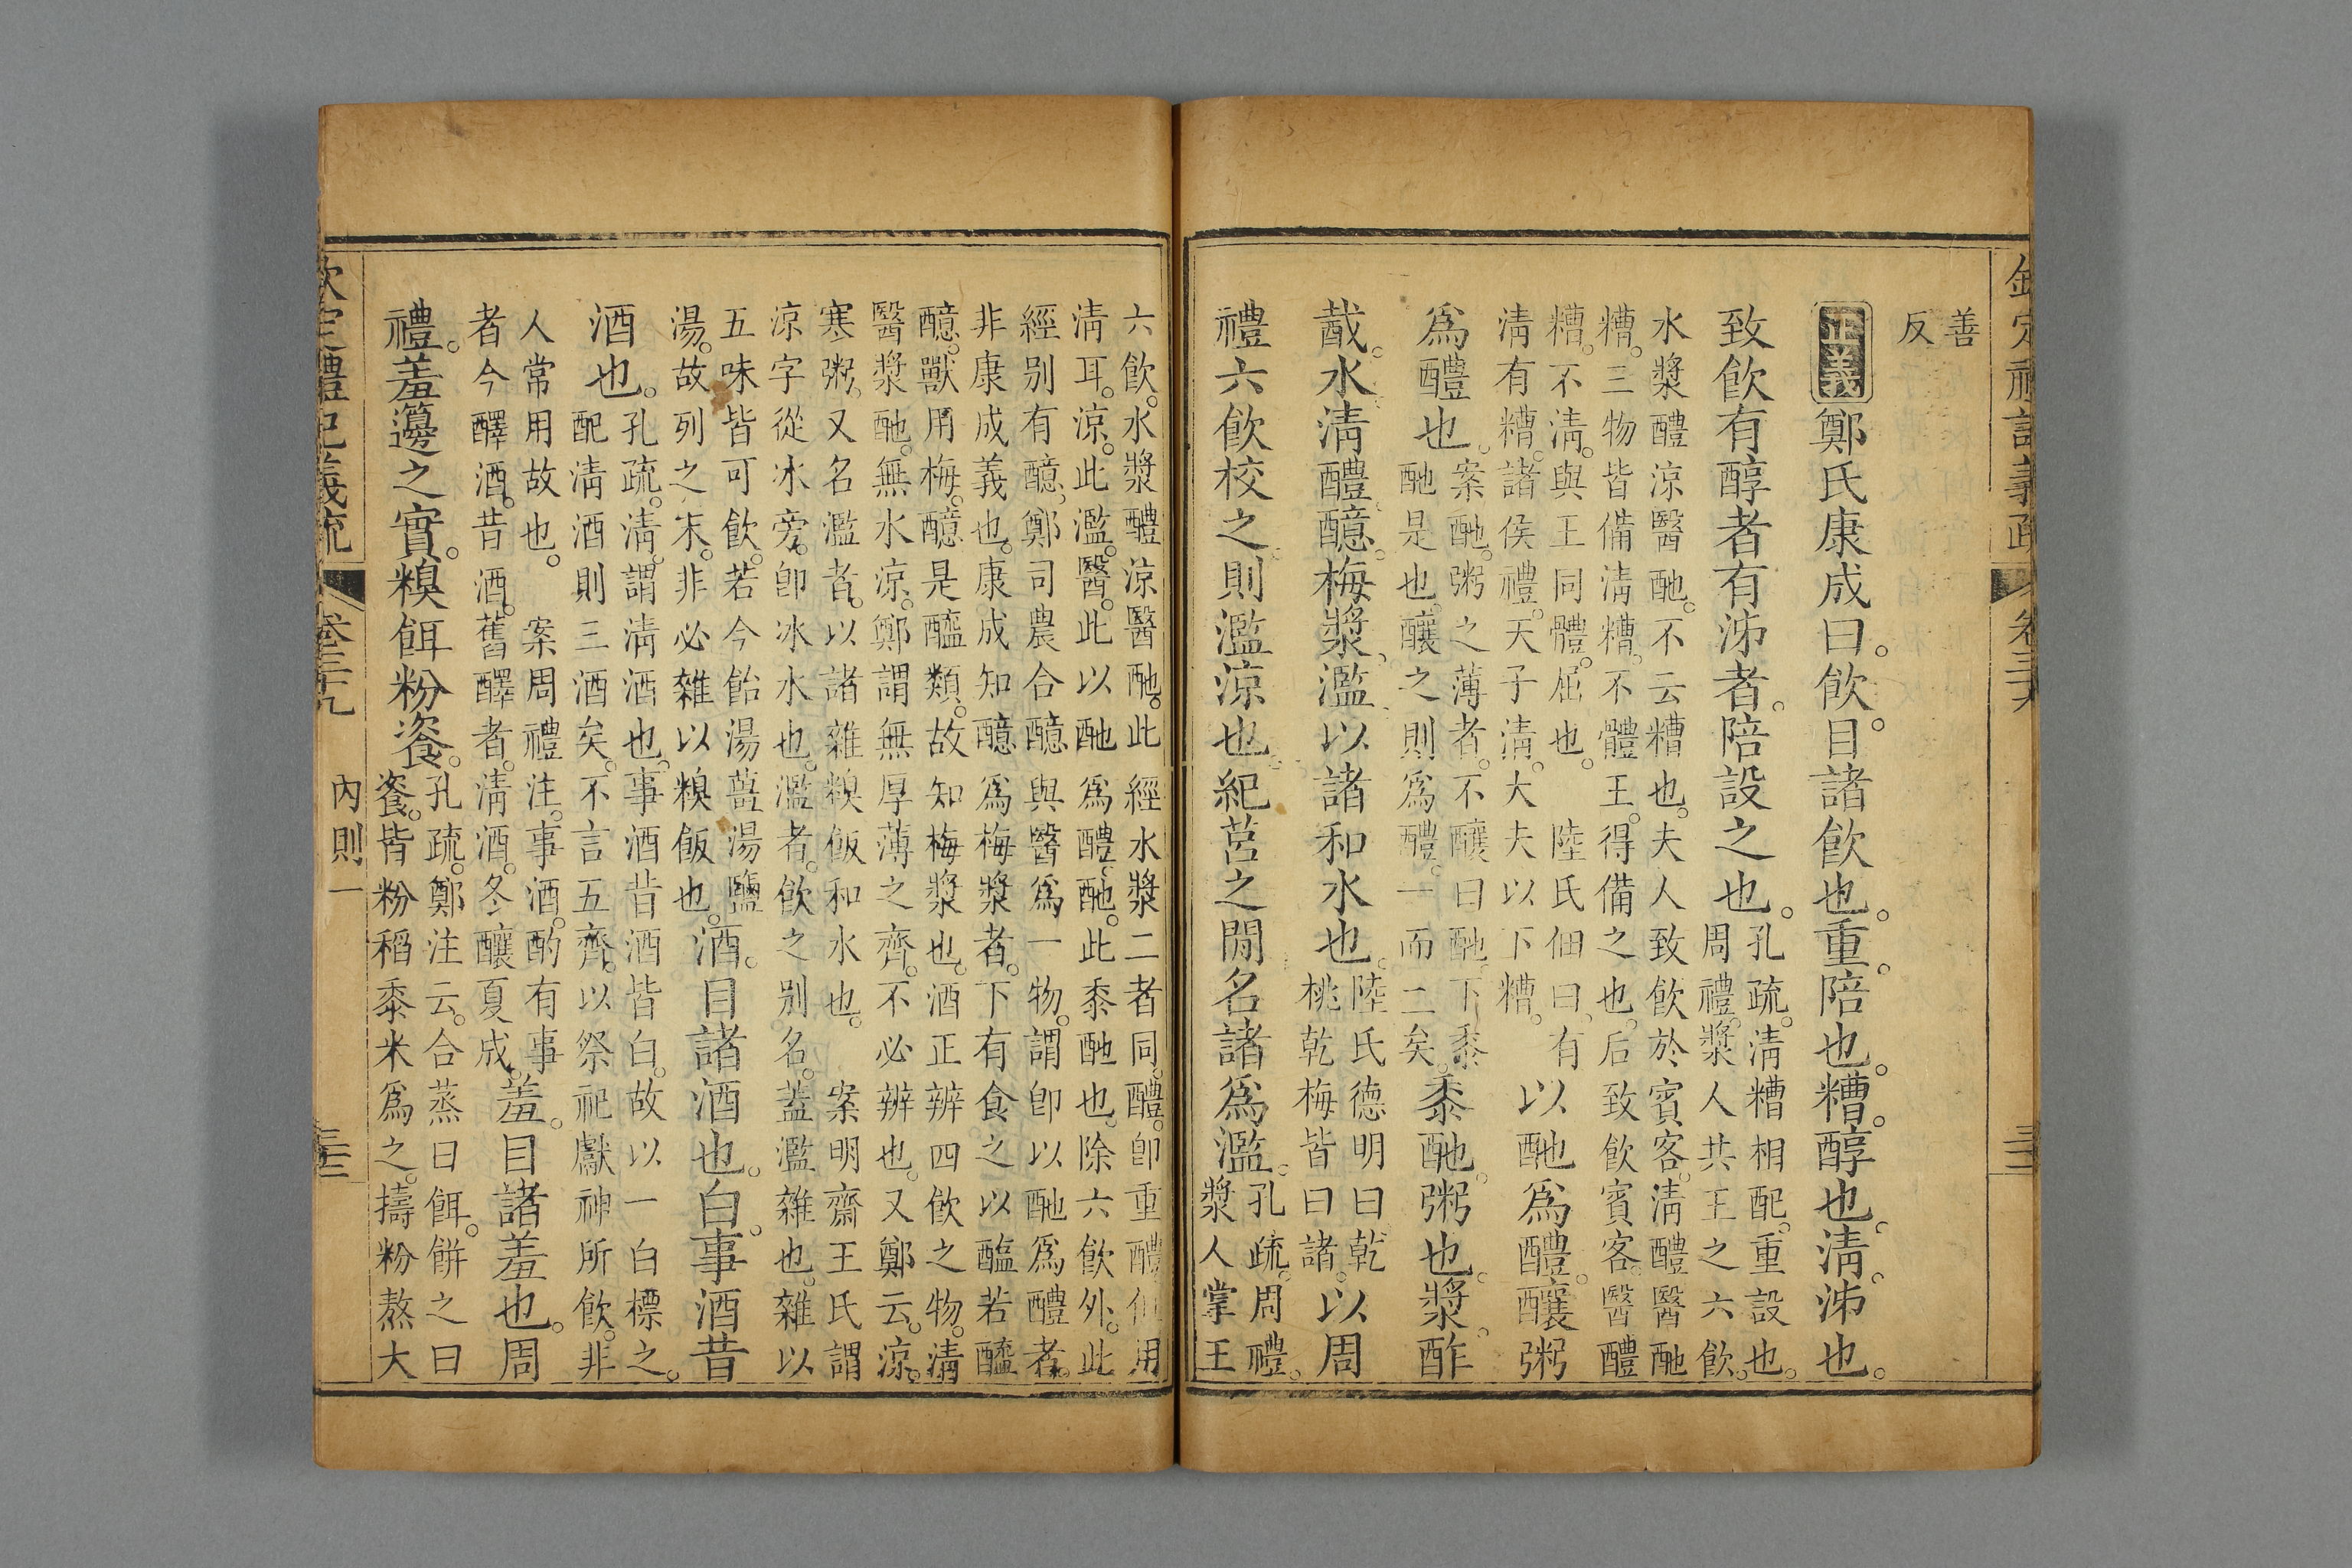 善
反
正義 鄭氏康成曰。飲。目諸飲也。重。陪也。糟。醇也。淸。泲也。
致飲有醇者有泲者。陪設之也。
孔疏。淸糟相配。重設也。
周禮。漿人共王之六飲。
水漿醴涼醫酏。不云糟也。夫人致飲於賓客。淸醴醫酏
糟。三物皆備淸糟。不體王。得備之也。后致飲賓客。醫醴
糟。不淸。與王同體。屈也。 陸氏佃曰。有
淸有糟。諸侯禮。天子淸。大夫以下糟。
以酏爲醴。釀粥
爲醴也。
案酏。粥之薄者。不釀曰酏。下黍
酏是也。釀之則爲醴。一而二矣。
黍酏。粥也。漿。酢
酨。水淸醴醷。梅漿。濫以諸和水也。
陸氏德明曰。乾
桃乾梅皆曰諸。
以周
禮六飲校之。則濫。涼也。紀莒之閒名諸爲濫。
孔疏。周禮。
漿人掌王
六飲。水漿醴涼醫酏。此經水漿二者同。醴。卽重醴但用
淸耳。涼。此濫。醫。此以酏爲醴。酏。此黍酏也。除六飲外。此
經別有醷。鄭司農合醷與醫爲一物。謂卽以酏爲醴者。
非康成義也。康成知醷爲梅漿者。下有食之以醢若醯
醷。獸用梅。醷是醯類。故知梅漿也。酒正辨四飲之物。淸
醫漿酏。無水涼。鄭謂無厚薄之齊。不必辨也。又鄭云。涼。
寒粥。又名濫者。以諸雜糗飯和水也。 案明齋王氏謂
涼字從冰旁。卽冰水也。濫者。飲之別名。蓋濫雜也。雜以
五味皆可飲。若今飴湯薑湯鹽
湯。故列之末。非必雜以糗飯也。
酒。目諸酒也。白。事酒昔
酒也。
孔疏。淸。謂淸酒也。事酒昔酒皆白。故以一白標之。
配淸酒則三酒矣。不言五齊。以祭祀獻神所飲。非
人常用故也。 案周禮注。事酒。酌有事
者今醳酒。昔酒。舊醳者。淸酒。冬釀夏成。
羞。目諸羞也。周
禮。羞籩之實。糗餌粉餈。
孔疏。鄭注云。合蒸曰餌。餅之曰
餈。皆粉稻黍米爲之。擣粉熬大
欽定禮記義疏 卷三十九 內則一 三十三